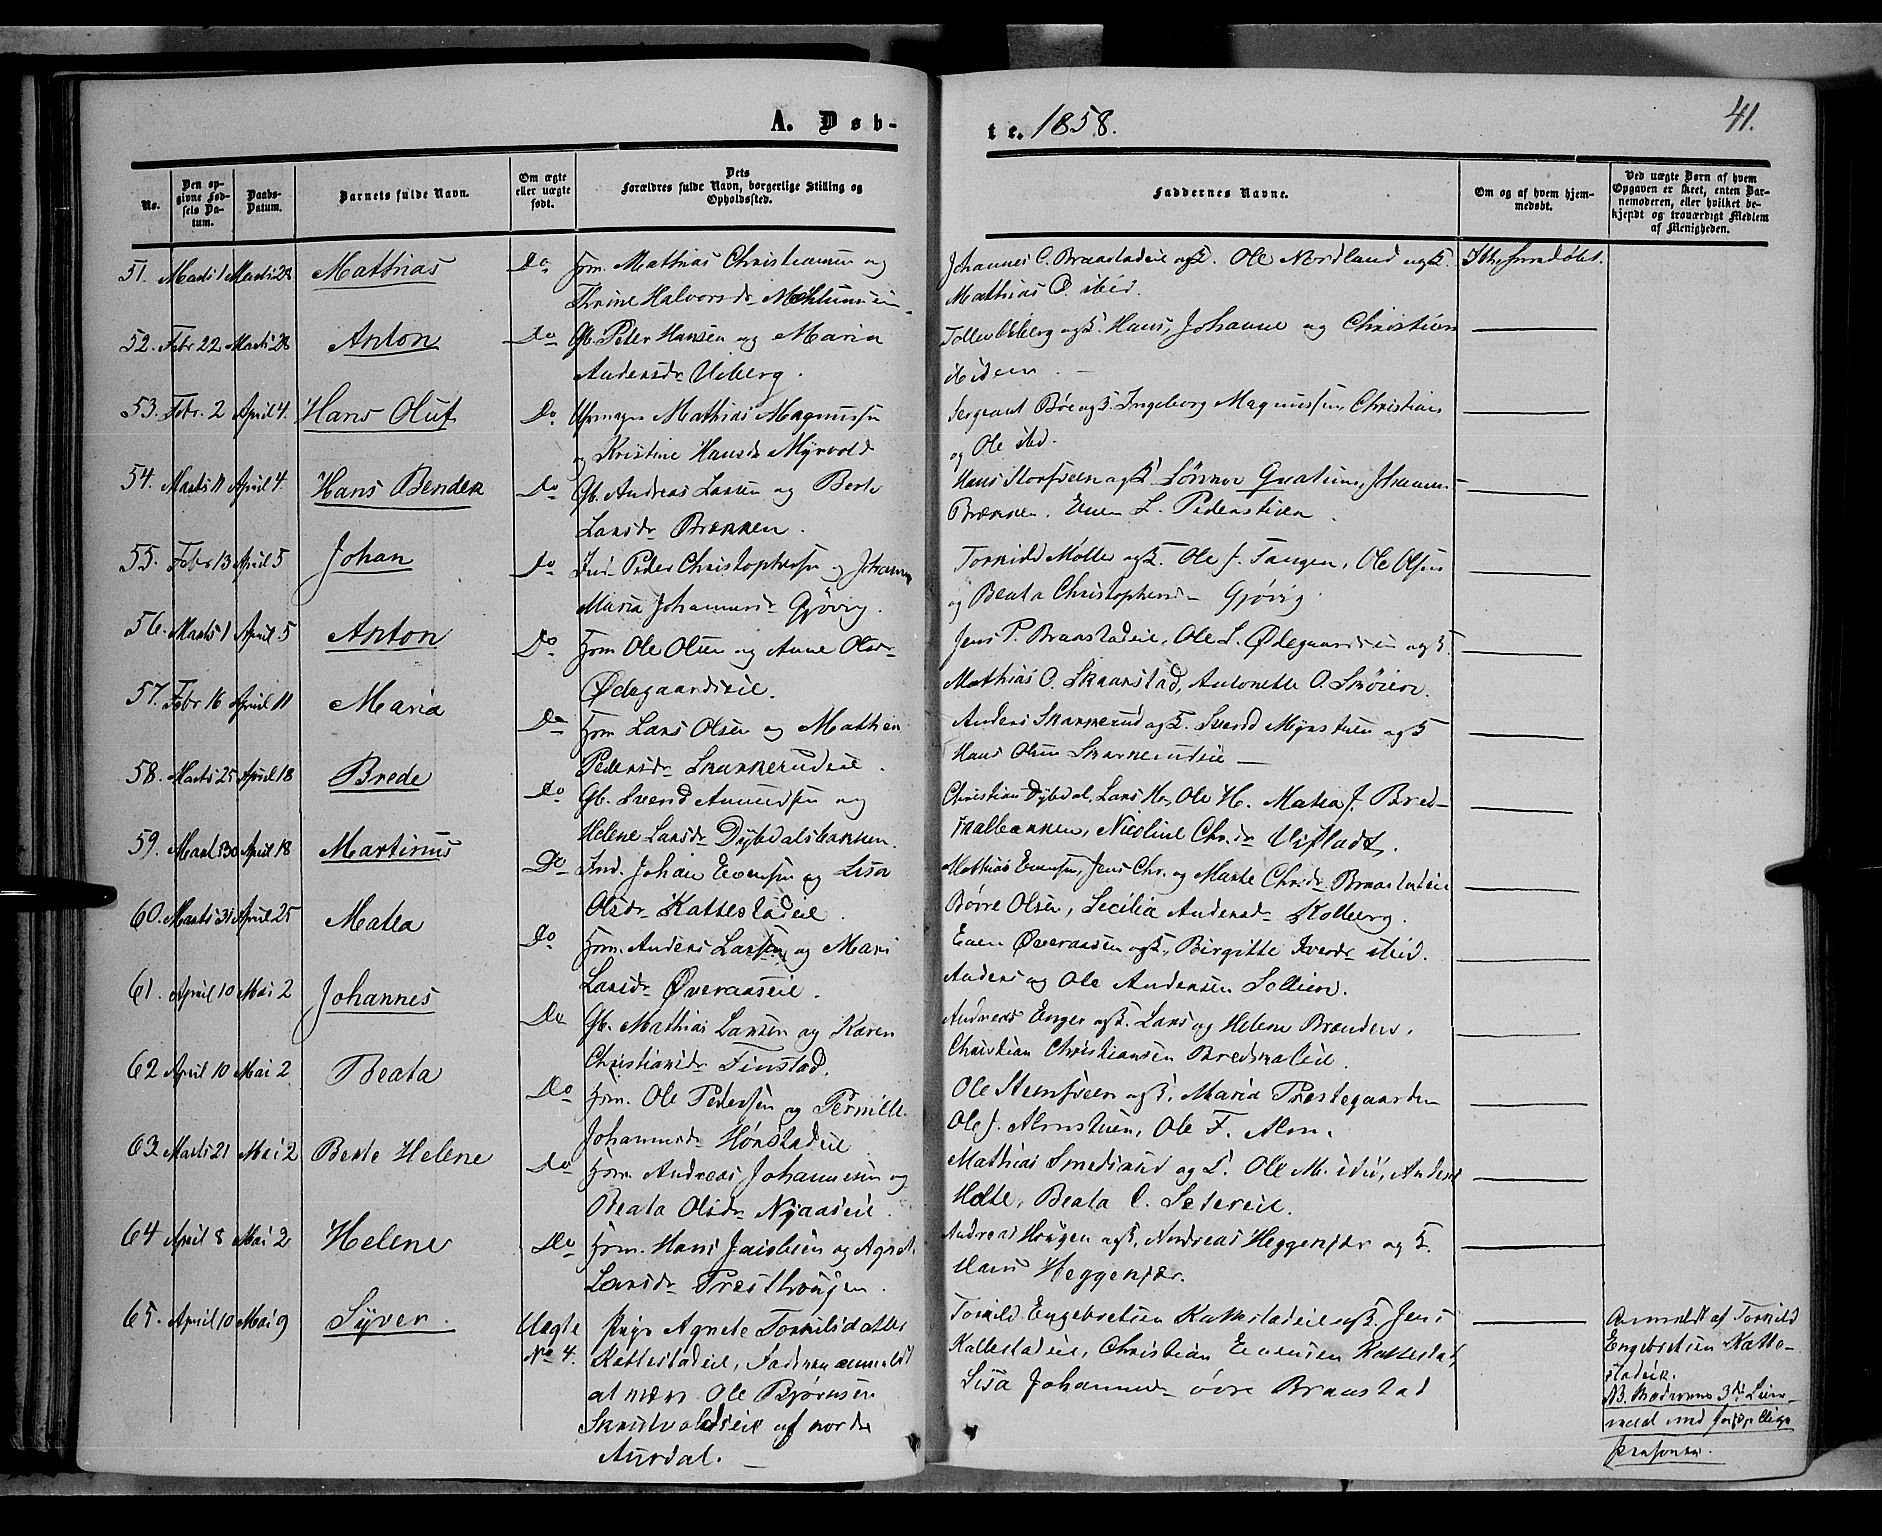 A. Døb-
te. 1858.
41.
No.
Den opgivne Fødsels Datum.
Daabs-Datum.
Barnets fulde Navn.
Om ægte eller uægte født.
Dets Forældres fulde Navn, borgerlige Stilling og Opholdssted.
Faddernes Navne.
Om og af hvem hjemmedøbt.
Ved uægte Børn af hvem Opgaven er skeet, enten Barnemoderen, eller hvilket bekjendt og troværdigt Medlem af Menigheden.
51. Marts 1 Marts 28 Mathias Do Hm. Mathias Christiansen og
Johannes C. Braastadeie og K. Ole Nordland og K. Ikke hjemdøbt.
Thrine Halvorsdr. Mæhlumseie
Mathias O. ibid.
52. Febr 22 Marts 28 Anton Do Gb. Peter Hansen og Maria
Hans, Johanne og Christian
Andersdr. Viberg.
ibidem.
53. Febr. 2 April 4. Hans Oluf Do Mathias Magnussen
Sergeant Bøe og K. Ingeborg Magnussen, Christian
og Kristine Hansdr Myrvold
og Ole ibd.
54. Marts 11 April 4. Hans Bender Do Gb. Andreas Larsen og Berte
Hans og K. Johannes
Larsdr Brækken.
Brækken. Even L. Pederstuen.
55. Febr 13 April 5 Johan Do Ind. Peder Christophersen og Johanne
Torkild Møller og K. Ole J. Tangen, Ole Olsen
Maria Johannesdr Gjøvig.
og Beata Christophersdr Gjøvig.
56. Marts 1 April 5 Anton Do Hm Ole Olsen og Anne Olsdr
Jens P. Braastadeie, Ole L. Ødegaardseie og K.
Ødegaardseie.
Mathias O. Skaanstad, Antonette O. Skøien.
57. Febr 16 April 11 Maria Do Hm Lars Olsen og Mathea
Anders Skarkerud og K. Svend og K
Pedersdr Skarkerudeie.
Hans Olsen Skarkerudeie
58. Marts 25 April 18 Brede Do Gb. Svend Amundsen og
Christian Dybdal, Lars H., Ole H. Matea J. Bred-
Helene Larsdr Dybdalsbakken.
skalbakken, Nicoline Chr.dr Vifstad.
59. Marts 30 April 18 Martinus Do Ind. Johan Evensen og Lisa
Mathias Evensen, Jens Chr. og Marte Chr.dr Braastadeie
Olsdr Kattestadeie.
Børre Olsen, Secilia Andersdr Kolberg.
60. Marts 31 April 25 Matea Do Hm. Anders Larsen og Mari
Even Øveraasen og K, Birgitte Iversdr ibid.
Larsdr Øveraaseie.
Anders og Ole Andersen Sollien.
61. April 10 Mai 2 Johannes Do Gb. Mathias Larsen og Karen
Andreas Enger og K. Lars og Helene Brænden.
Christiansdr Finstad.
Christian Christiansen Bredskaleie.
62 April 10 Mai 2 Beata Do Hm. Ole Pedersen og Pernille
Ole og K, Maria Prestegaarden
Johannesdr Honstadeie
Ole J. Almstuen, Ole F. Alm.
63 Marts 21 Mai 2 Berte Helene Do Hm. Andreas Johannesen og
Mathias Smedsrud og K. Ole M. ibid, Anders
Beata Olsdr Nyaaseie.
Holte, Beata O. Setereie.
64 April 8 Mai 2 Helene Do Hm. Hans Jacobsen og Agnete
Andreas Haugen og K, Andreas Heggenjær og K.
Larsdr Presthougen.
Hans Heggenjær.
65. April 10 Mai 9 Syver. Uægte Pige Agnete Torkilsdatter
Torkild Engebretsen Kattestadeie og K. Jens
Anmeldt af Torkild
No 4. Kattestadeie, Faderen anmeldt
Kattestadeie, Christian Evensen Kattestad,
Engebretsen Katte-
at være Ole Bjørnsen
Lisa Johannesdr øvre Braastad
stadeie.
Skrutvoldseie af nordre
NB. Moderens 3de Leier-
Aurdal.
maal med forskjellige
Personer.